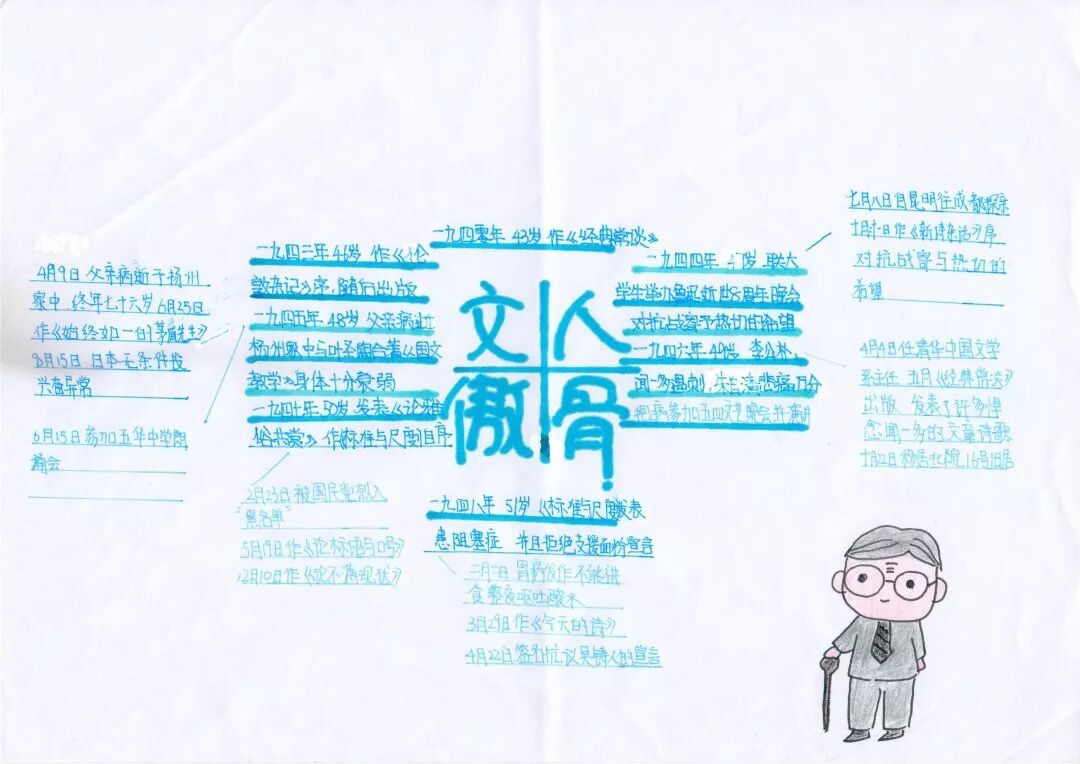 文人
傲骨
一九四零年 43岁 作《经典常谈》
一九四三年46岁 作《伦
敦杂记》序,随后出版
一九四五年48岁 父亲病逝
扬州家中与叶圣陶合著《国文
教学》身体十分衰弱
一九四七年50岁 发表《论雅
俗共赏》作《标准与尺度》自序
4月9日 父亲病逝于扬州
家中,终年七十六岁 6月25日
作《始终如一的茅盾先生》
8月15日 日本无条件投
兴奋异常
6月15日参加五华中学
诵会
2月23日 被国民党列入
"黑名单"
5月19日作《论标语与口号》
12月10日作《论不满现状》
一九四八年 51岁《标准与尺度》发表
患阻塞症 并且拒绝支援面粉宣言
二月二日 胃病发作不能进
食整夜呕吐酸水
3月29日作《今天的诗》
4月22日签名抗议吴铸人的宣言
一九四四年 47岁 联大
学生举办鲁迅逝世8周年晚会
对抗战寄予热切的希望
一九四六年49岁 李公朴,
闻一多遇刺,朱自清悲痛万分
抱病参加五四文艺晚会并演讲
七月八日自昆明往成都探亲
十月 日作《新诗杂话》序
对抗战寄与热切的
希望
4月4日任清华中国文学
系主任 五月《经典常谈》
出版 发表了许多悼
念闻一多的文章诗歌
十月22日移居北院16号旧居